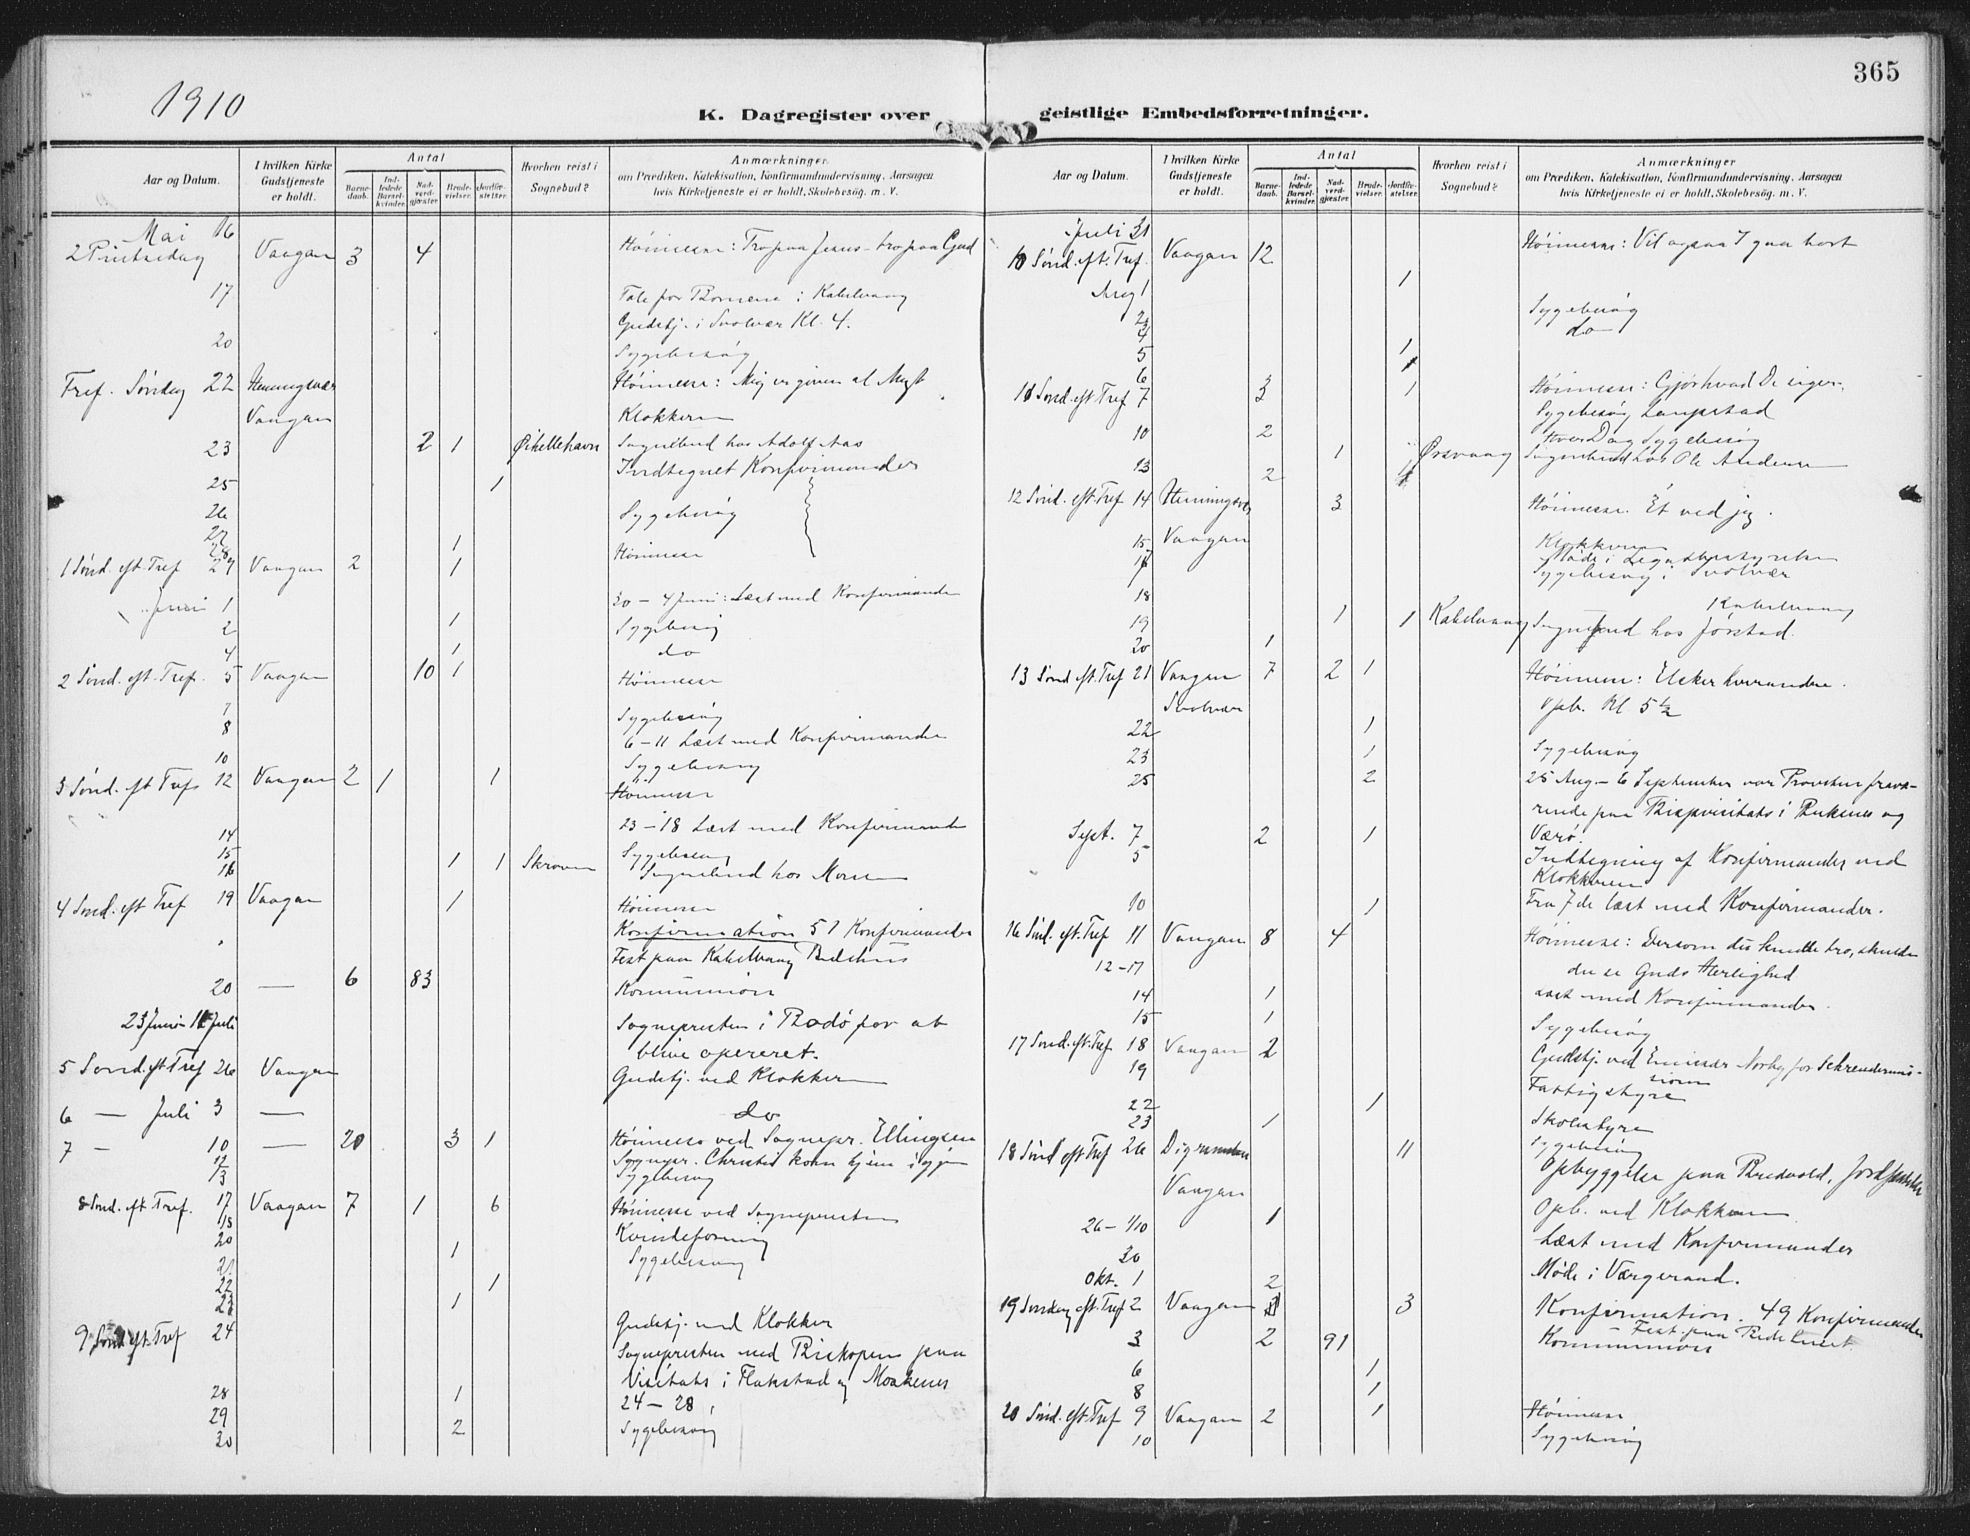 1910
365
K. Dagregister over geistlige Embedsforretninger.
Aar og Datum. I hvilken Kirke Gudstjeneste er holdt. Antal Barnedaab. Indledede Barselkvinder. Nadverdgjæster. Brudevielser. Jordfæstelser. Hvorhen reist i Sognebud? Anmærkninger om Prædiken, Katekisation, Konfirmandundervisning, Aarsagen hvis Kirketjeneste ei er holdt, Skolebesøg. m. V.
Mai 16
2 Pintsedag Vaagan 3 4 Høimesse: Tro paa Jesus - tro paa Gud
17 Tale for Børnene i Kabelvaag
Gudstj. i Svolvær Kl. 4.
20 Sygebesøg
Tref. Søndag 22 Henningsvær Høimesse: Mig er given al Magt
Vaagan Klokkeren
23 2 1 Ørkellehavn Sognebud hos Adolf Aas
Indtegnet Konfirmander
25 1
26 Sygebesøg
27
28 1 Høimesse
1 Sønd. eft. Tref 29 Vaagan 2 1
30 - 4 Juni: Læst med Konfirmander
Juni 1 1 Sygebesøg
2
4 1 do
2 Sønd. eft. Tref. 5 Vaagan 10 1 Høimesse
7 Sygebesøg
8 6 - 11 Læst med Konfirmander
10 Sygebesøg
3 Sønd. eft Tref 12 Vaagan 2 1 1 Høimesse
13 - 18 Læst med Konfirmander
14
15 1 1 Skroven Sygebesøg
16 Sognebud hos
4 Sønd. eft Tref 19 Vaagan 1 Høimesse
Konfirmation 51 Konfirmander
Fest paa Kabelvaag Bedehus
20 — 6 83 Kommunion
23 Juni - Juli Sognepresten i Bodø for at
blive opereret.
5 Sønd. eft Tref 26 Vaagan Gudstj. ved Klokker
6 — Juli 3 — do
7 - 10 — 20 3 1 Høimesse ved Sognepr. Ellingsen
12 Sognepr. Christie kom hjem igjen
13 Sygebesøg
8 Sønd. eft. Tref. 17 Vaagan 7 1 6 Høimesse ved Sognepresten
18 Kvindeforening
20 1 Sygebesøg
21
22 1
23 1
Gudstj. ved Klokker
9 Sønd. eft. Tref 24 Sognepresten med Biskopen paa
Visitats i Flakstad og Moskenes
28 1 24 - 28
29
30 2 Sygebesøg
Aar og Datum. I hvilken Kirke Gudstjeneste er holdt. Antal Barnedaab. Indledede Barselkvinder. Nadverdgjæster. Brudevielser. Jordfæstelser. Hvorhen reist i Sognebud? Anmærkninger om Prædiken, Katekisation, Konfirmandundervisning, Aarsagen hvis Kirketjeneste ei er holdt, Skolebesøg. m. V.
Juli 31
10 Sønd. eft. Tref. Vaagan 12 Høimesse: Vil ogsaa I gaa bort
Aug 1 1 Sygebesøg
2 do
4
5 1
6
11 Sønd. eft Tref 7 3 1 Høimesse: Gjør hvad De siger.
Sygebesøg Laupstad
10 2 Hver Dag Sygebesøg
1 Ørsvaag Sognebud hos Ole Andersen
13 2
12 Sønd. eft. Tref 14 Henningsvær 3 Høimesse. Et ved jeg.
15 Vaagan Klokkeren
16 Møde i Legatbestyrelse
17 Sygebesøg i Svolvær
18 Kabelvaag
19 1 1 Kabelvaag Sognebud hos Jørstad.
20 1
13 Sønd eft. Tref 21 Vaagan 7 2 1 Høimesse: Elsker hverandre.
Svolvær Opb. Kl 5½
22 1
23 1 Sygebesøg
25 2 25 Aug - 6 September var Provsten fraværende
paa Bispevisitats i Buksnes og
Værø.
Sept. 7 2 1
5 Indtegning af Konfirmander ved
Klokkeren
10 1 Fra 7de læst med Konfirmander.
16 Sønd. eft. Tref 11 Vaagan 8 4 Høimesse: Dersom du kunde tro, skulde
12-17 du se Guds Herlighed
14 1 læst med Konfirmander.
15 1 Sygebesøg
17 Sønd. eft. Tref 18 Vaagan 2 Gudstj. ved Emissær Norby for
19 Fattigstyre
22 1
23 1 Skolestyre
Sygebesøg
18 Sønd eft Tref 26 Digermulen 11 Opbyggelse paa Bredvold, Jordfæstelse
Vaagan Opb. ved Klokkeren
26 - 1/10 1 Læst med Konfirmander
30
Okt. 1 2 Møde i Værgeraad.
19 Søndag eft. Tref 2 Vaagan 3 Konfirmation. 49 Konfirmander
Fest paa Bedehuset.
3 2 91 Kommunion
6 1
8 1
20 Sønd. eft. Tref 9 Vaagan 2 1 Høimesse
10 Sygebesøg